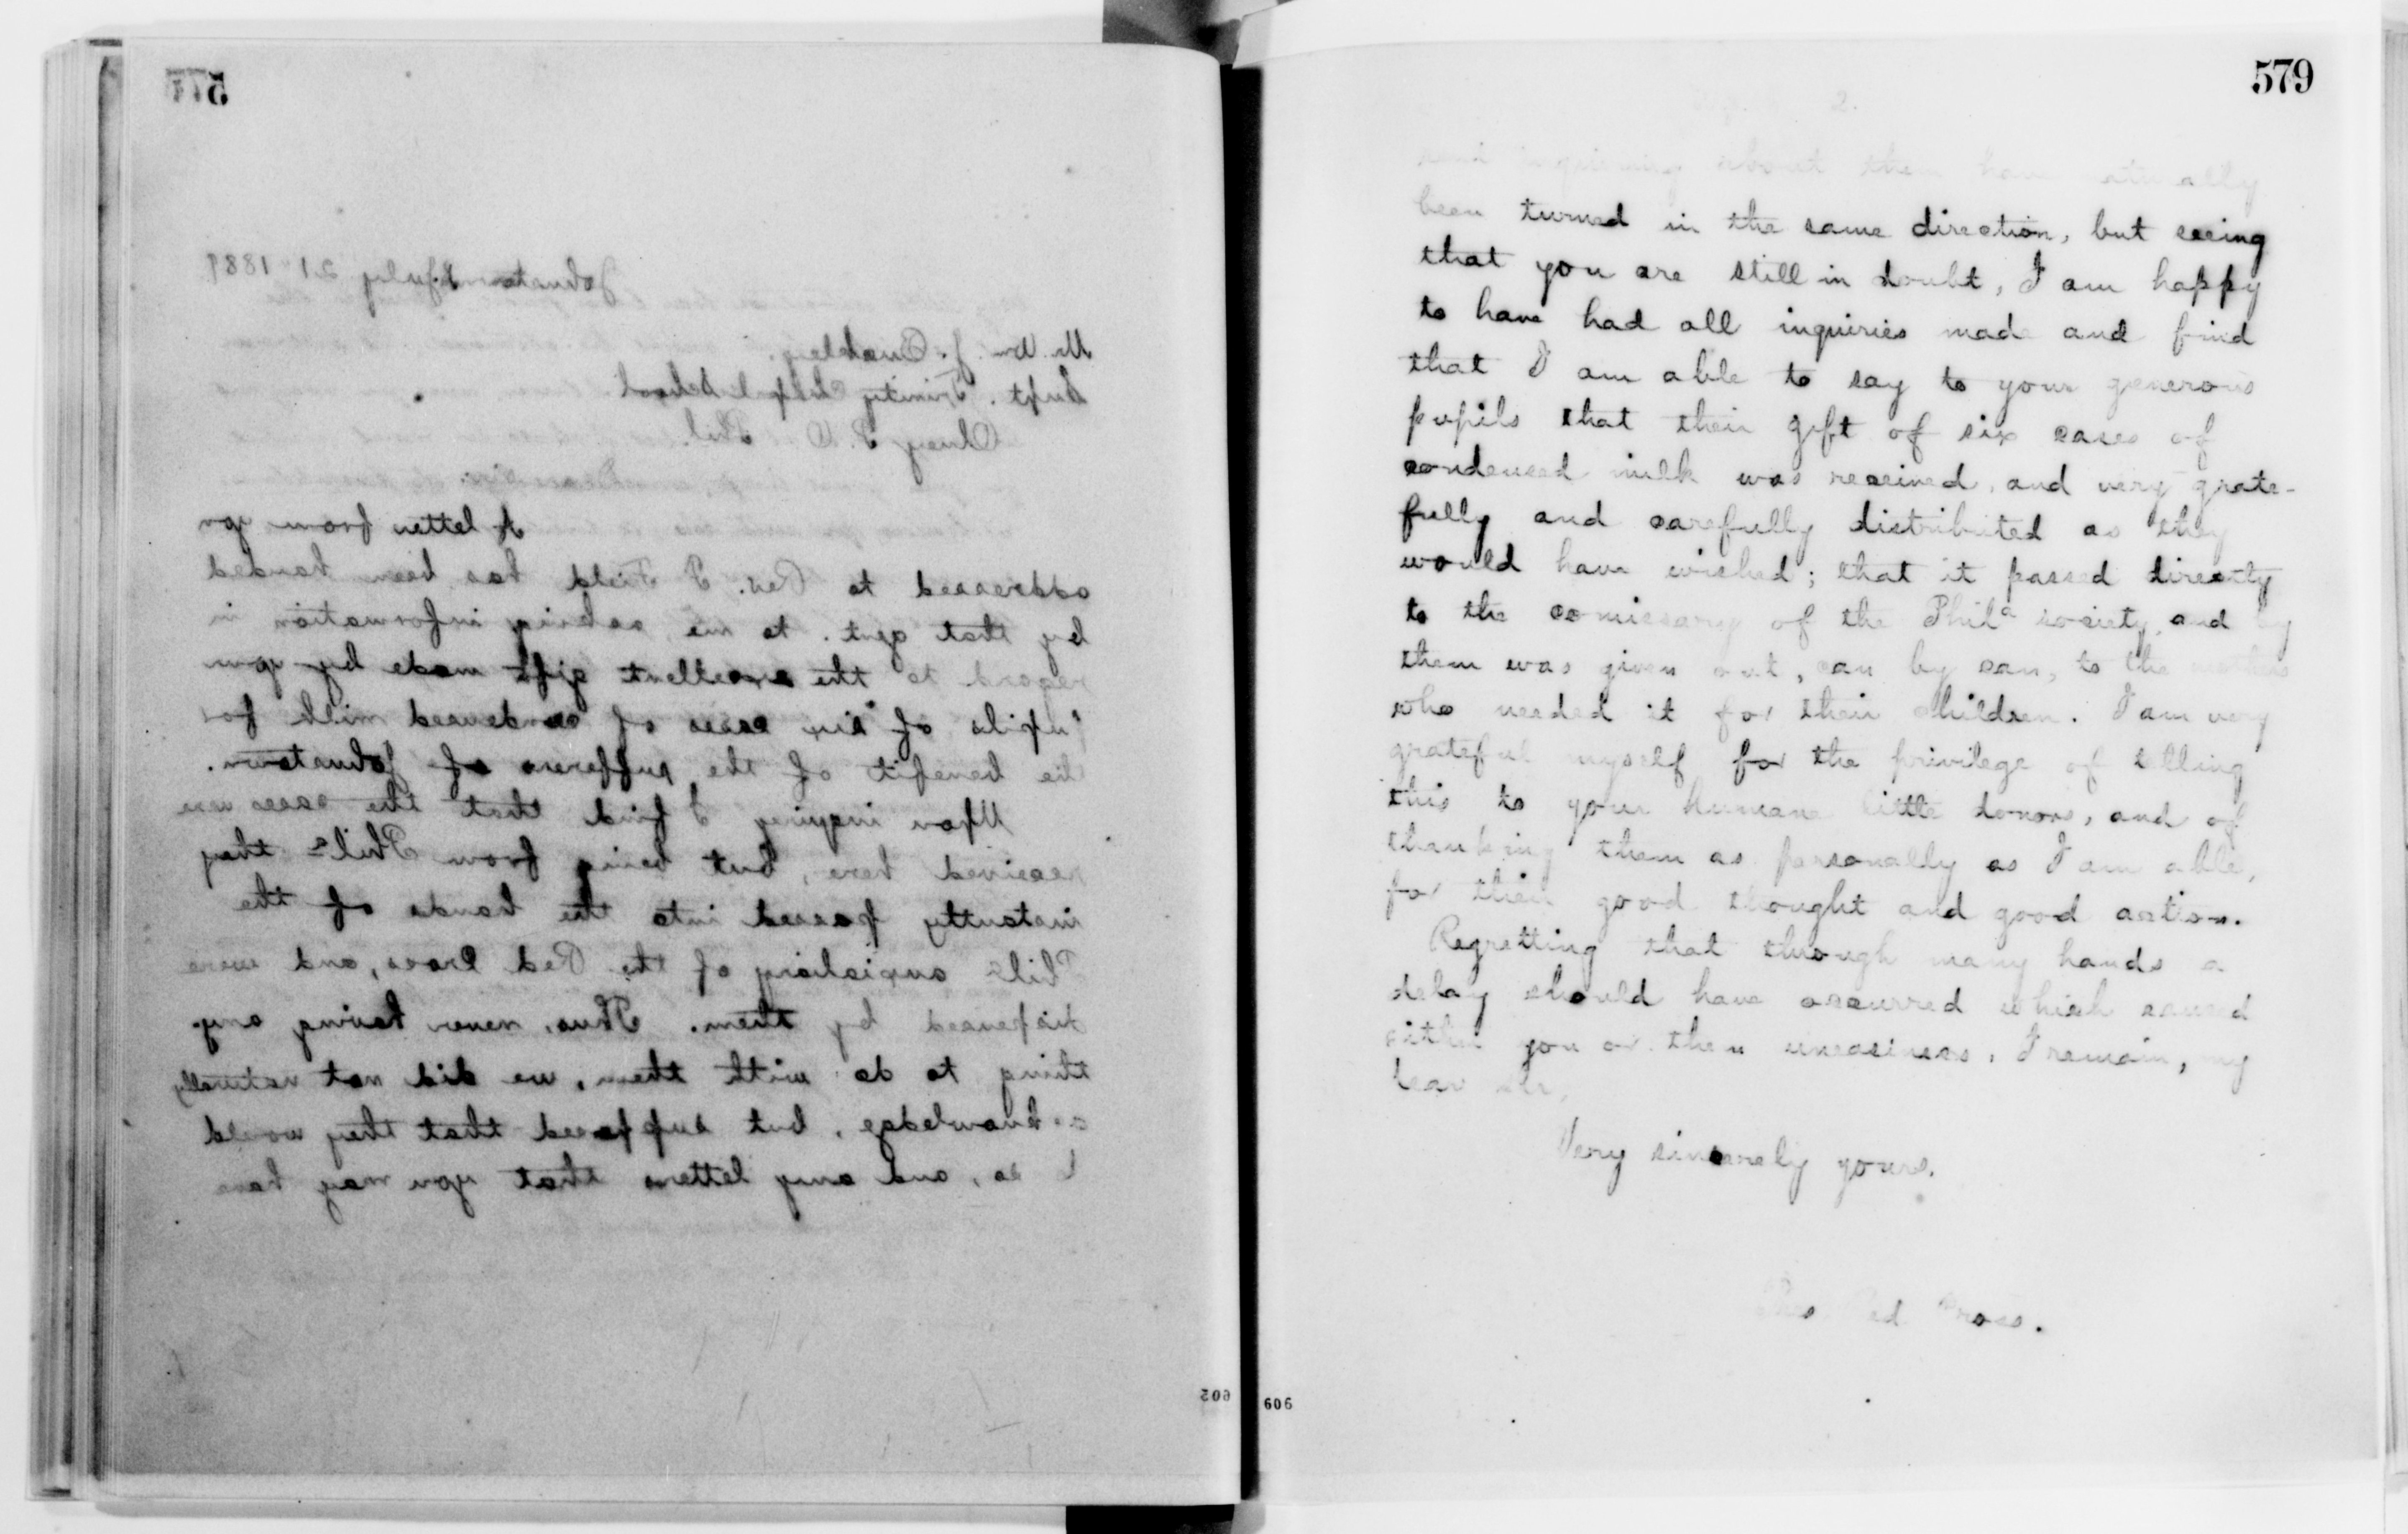 Johnstown July 21" 1889
Mr. Wm. J.
Supt. Trinity Chapel School
Olney P. O Phil.
Dear Sir.
A letter from you
addressed to Rev. P Field has been handed
by that gent. to me asking information in
regard to the excellent gift made by your
pupils of six cases of condensed milk for
the benefit of the sufferers of Johnstown.
Upon inquiry I find that the cases were
received here, but being from Phila they
instantly passed into the hands of the
Phila auxiliary of the Red Cross, and were
dispensed by them. Thus, never having any-
thing to do with them, we did not naturally
acknowledge, but supposed that they would
do so, and any letters that you may have
602
579
2.
sent inquiring about them have naturally
been turned in the same direction, but seeing
that you are still in doubt, I am happy
to have had all inquiries made and find
that I am able to say to your generous
pupils that their gift of six cases of
condensed milk was received, and very grate-
fully and carefully distributed as they
would have wished; that it passed directly
to the comissary of the Phila society, and by
them was given out, can by can, to the mothers
who needed it for their children. I am very
grateful myself for the privilege of telling
this to your humane little donors, and of
thanking them as personally as I am able,
for their good thought and good action.
Regretting that through many hands a
delay should have occurred which caused
either you or them uneasiness, I remain, my
dear sir,
Very sincerely yours.
Red Cross.
606